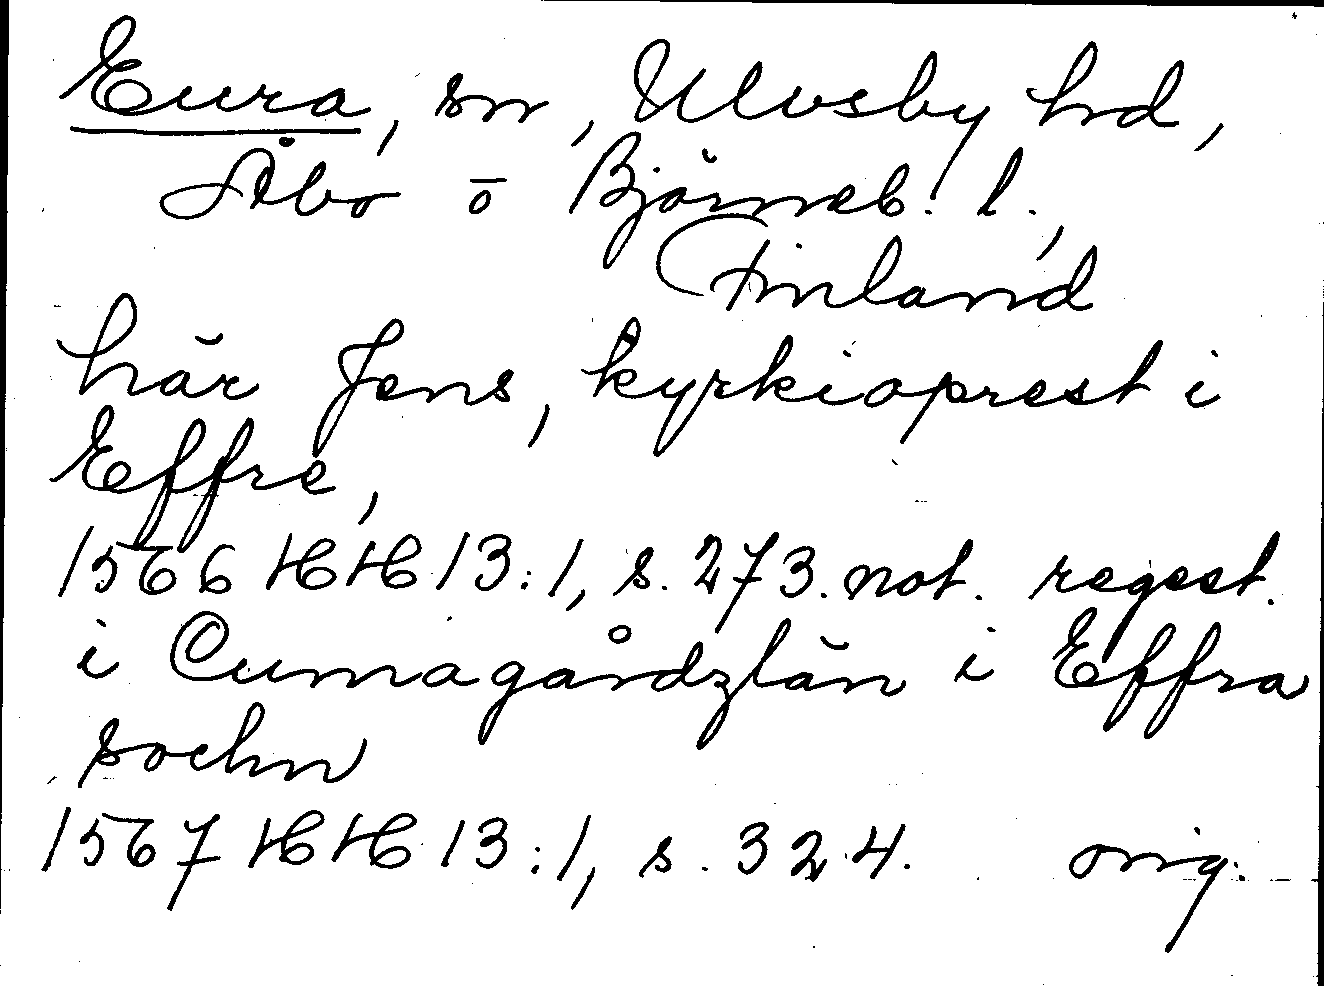 Eura, sn, Ulvsby hd,
Åbo o Björneb. l.,
Finland
här Jens, kyrkioprest i
Effre,
1566 HH 13:1, s. 273. not. regest.
i Cumagårdzlän i Effra
sochn
1567 HH 13:1, s. 324. orig.